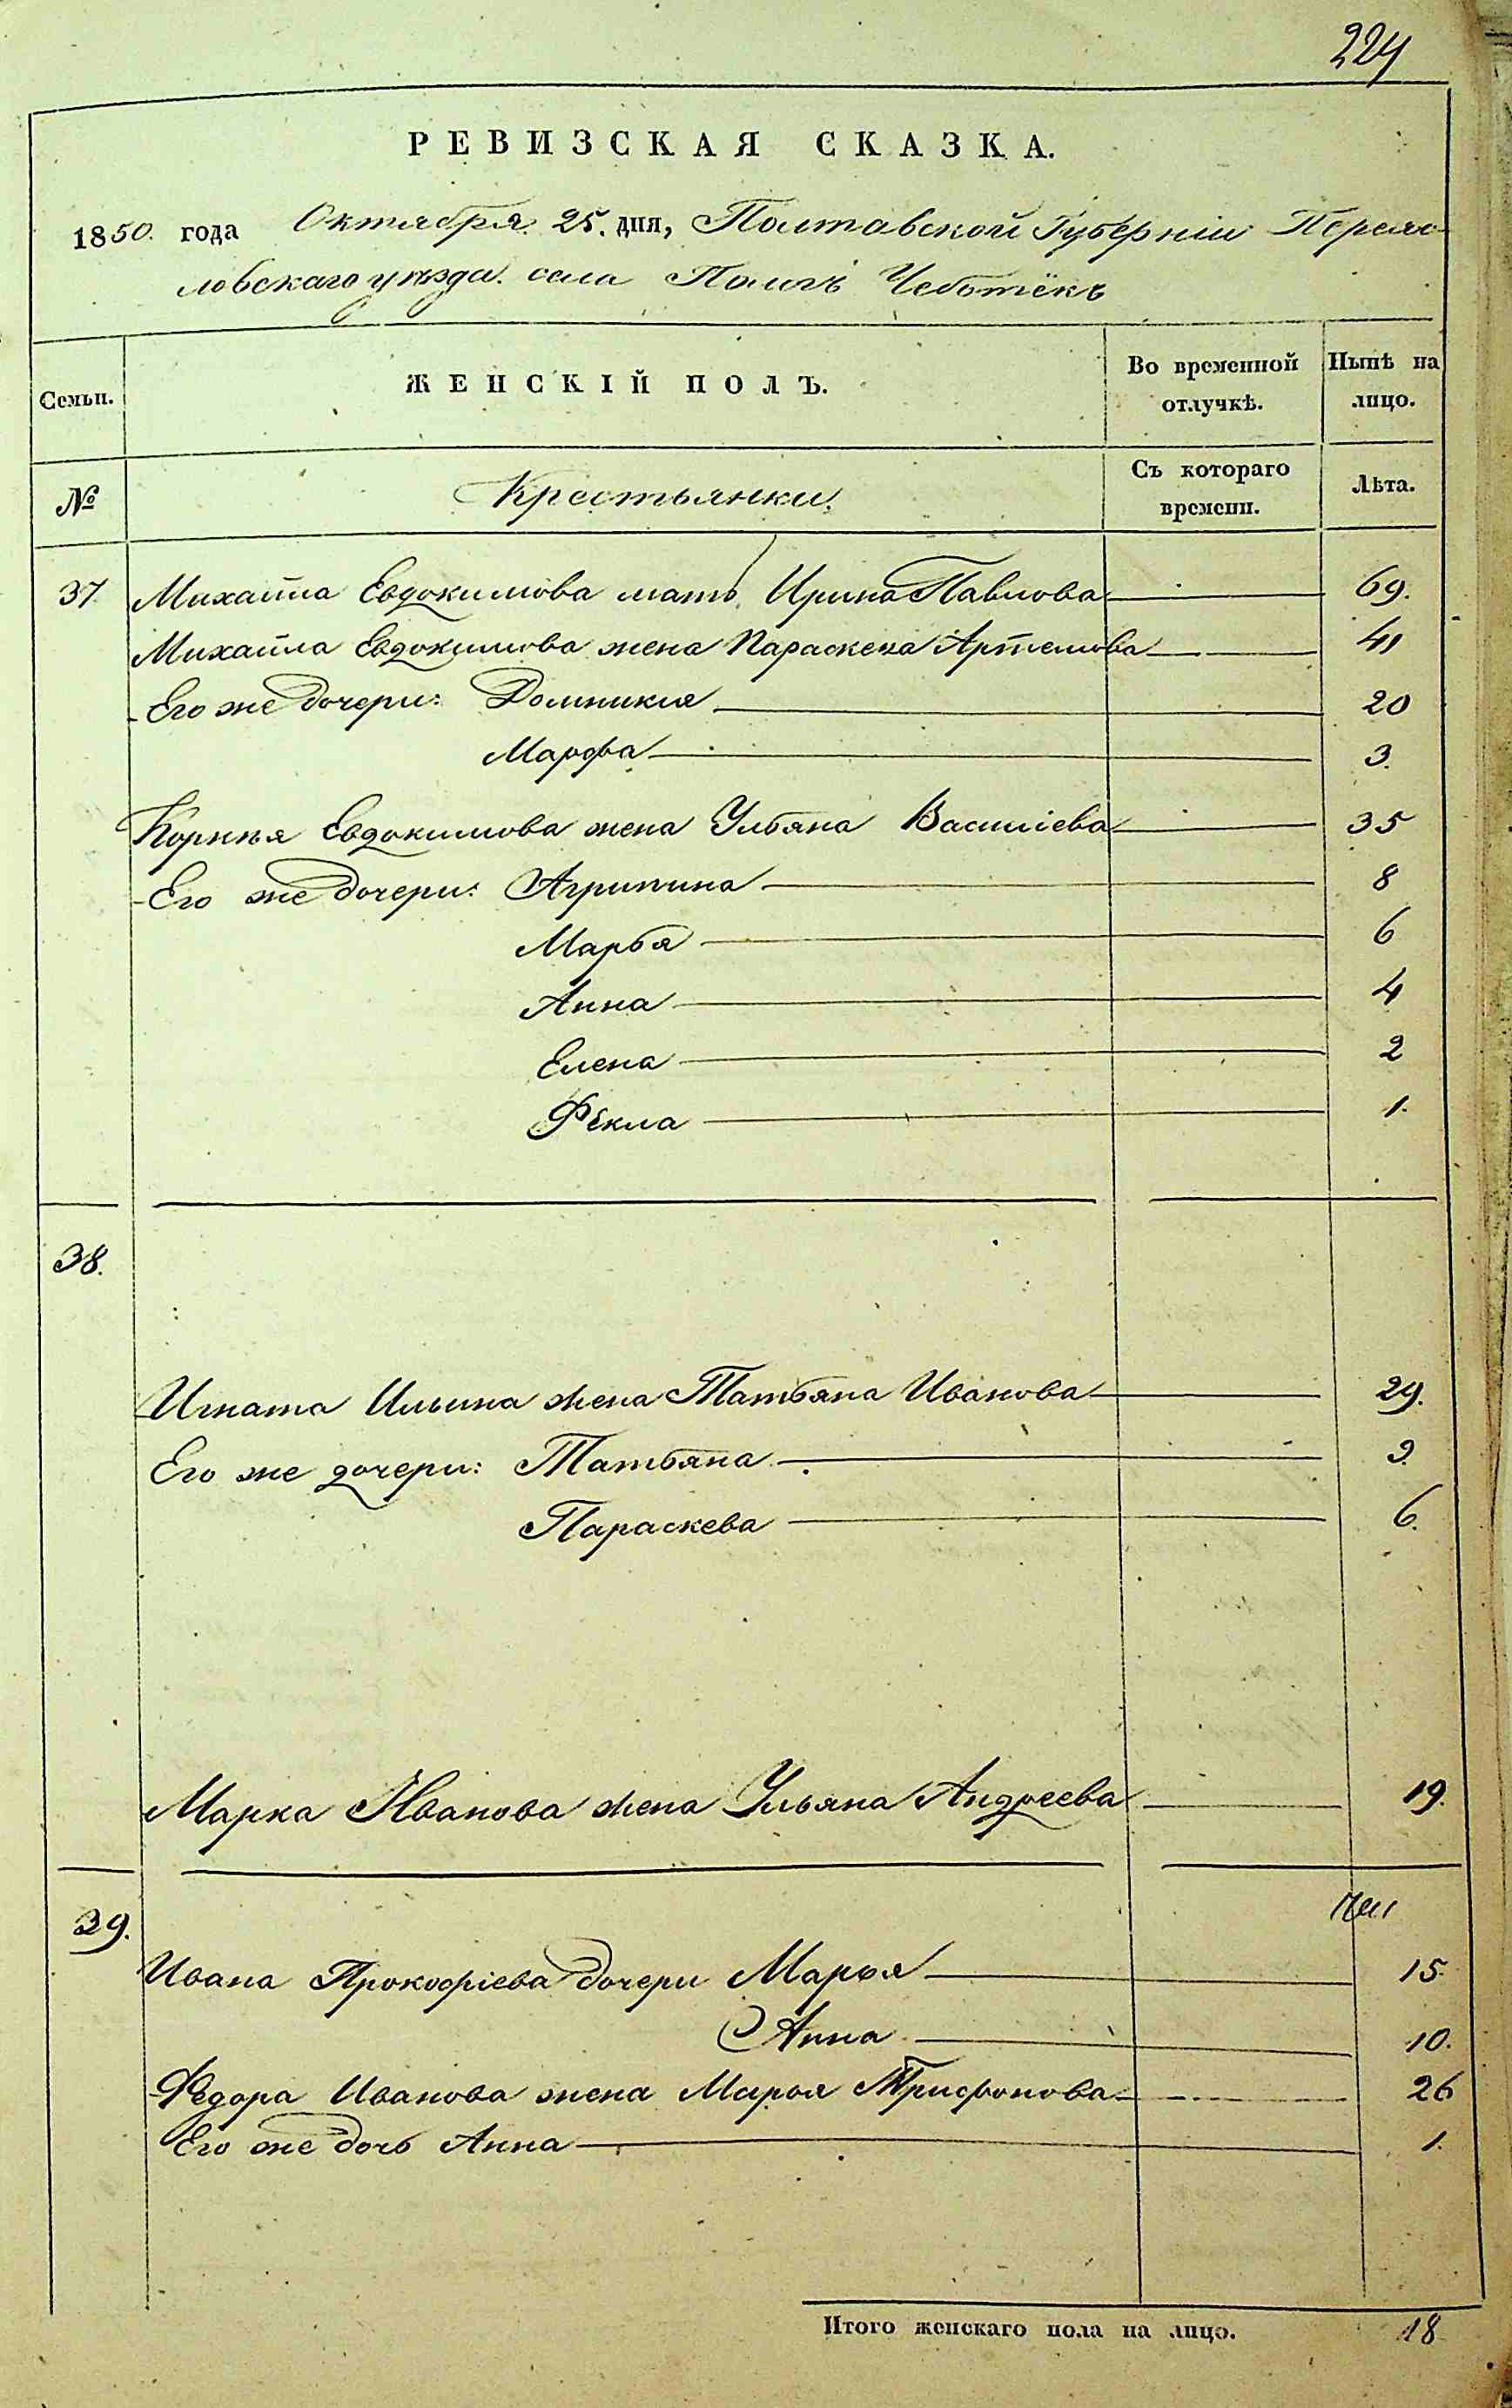 224
РЕВИЗСКАЯ СКАЗКА.
1850. года Октября 25. дня, Полтавской Губерніи Переяс-
ловскаго уѣзда. села Пологъ Чеботёкъ
Семьи. ЖЕНСКІЙ ПОЛЪ. Во временной отлучкѣ. Нынѣ на лицо.
№ Крестьянки. Съ котораго времени. Лѣта.
37. Михайла Евдокимова мать Ирина Павлова 69.
Михайла Евдокимова жена Параскева Артемова 41
Его же дочери: Домникия 20
Марфа 3.
Корнѣя Евдокимова жена Ульяна Василіева 35
Его же дочери: Агрипина 8
Марья 6
Анна 4
Елена 2
Фекла 1.
38.
Игната Ильина жена Татьяна Иванова 29.
Его же дочери: Татьяна 9.
Параскева 6.
Марка Иванова жена Ульяна Андреева 19.
39.
Ивана Прокофіева дочери Марья 15.
Анна 10.
Федора Иванова жена Марья Трифонова 26
Его же дочь Анна 1.
Итого женскаго пола на лицо. 18